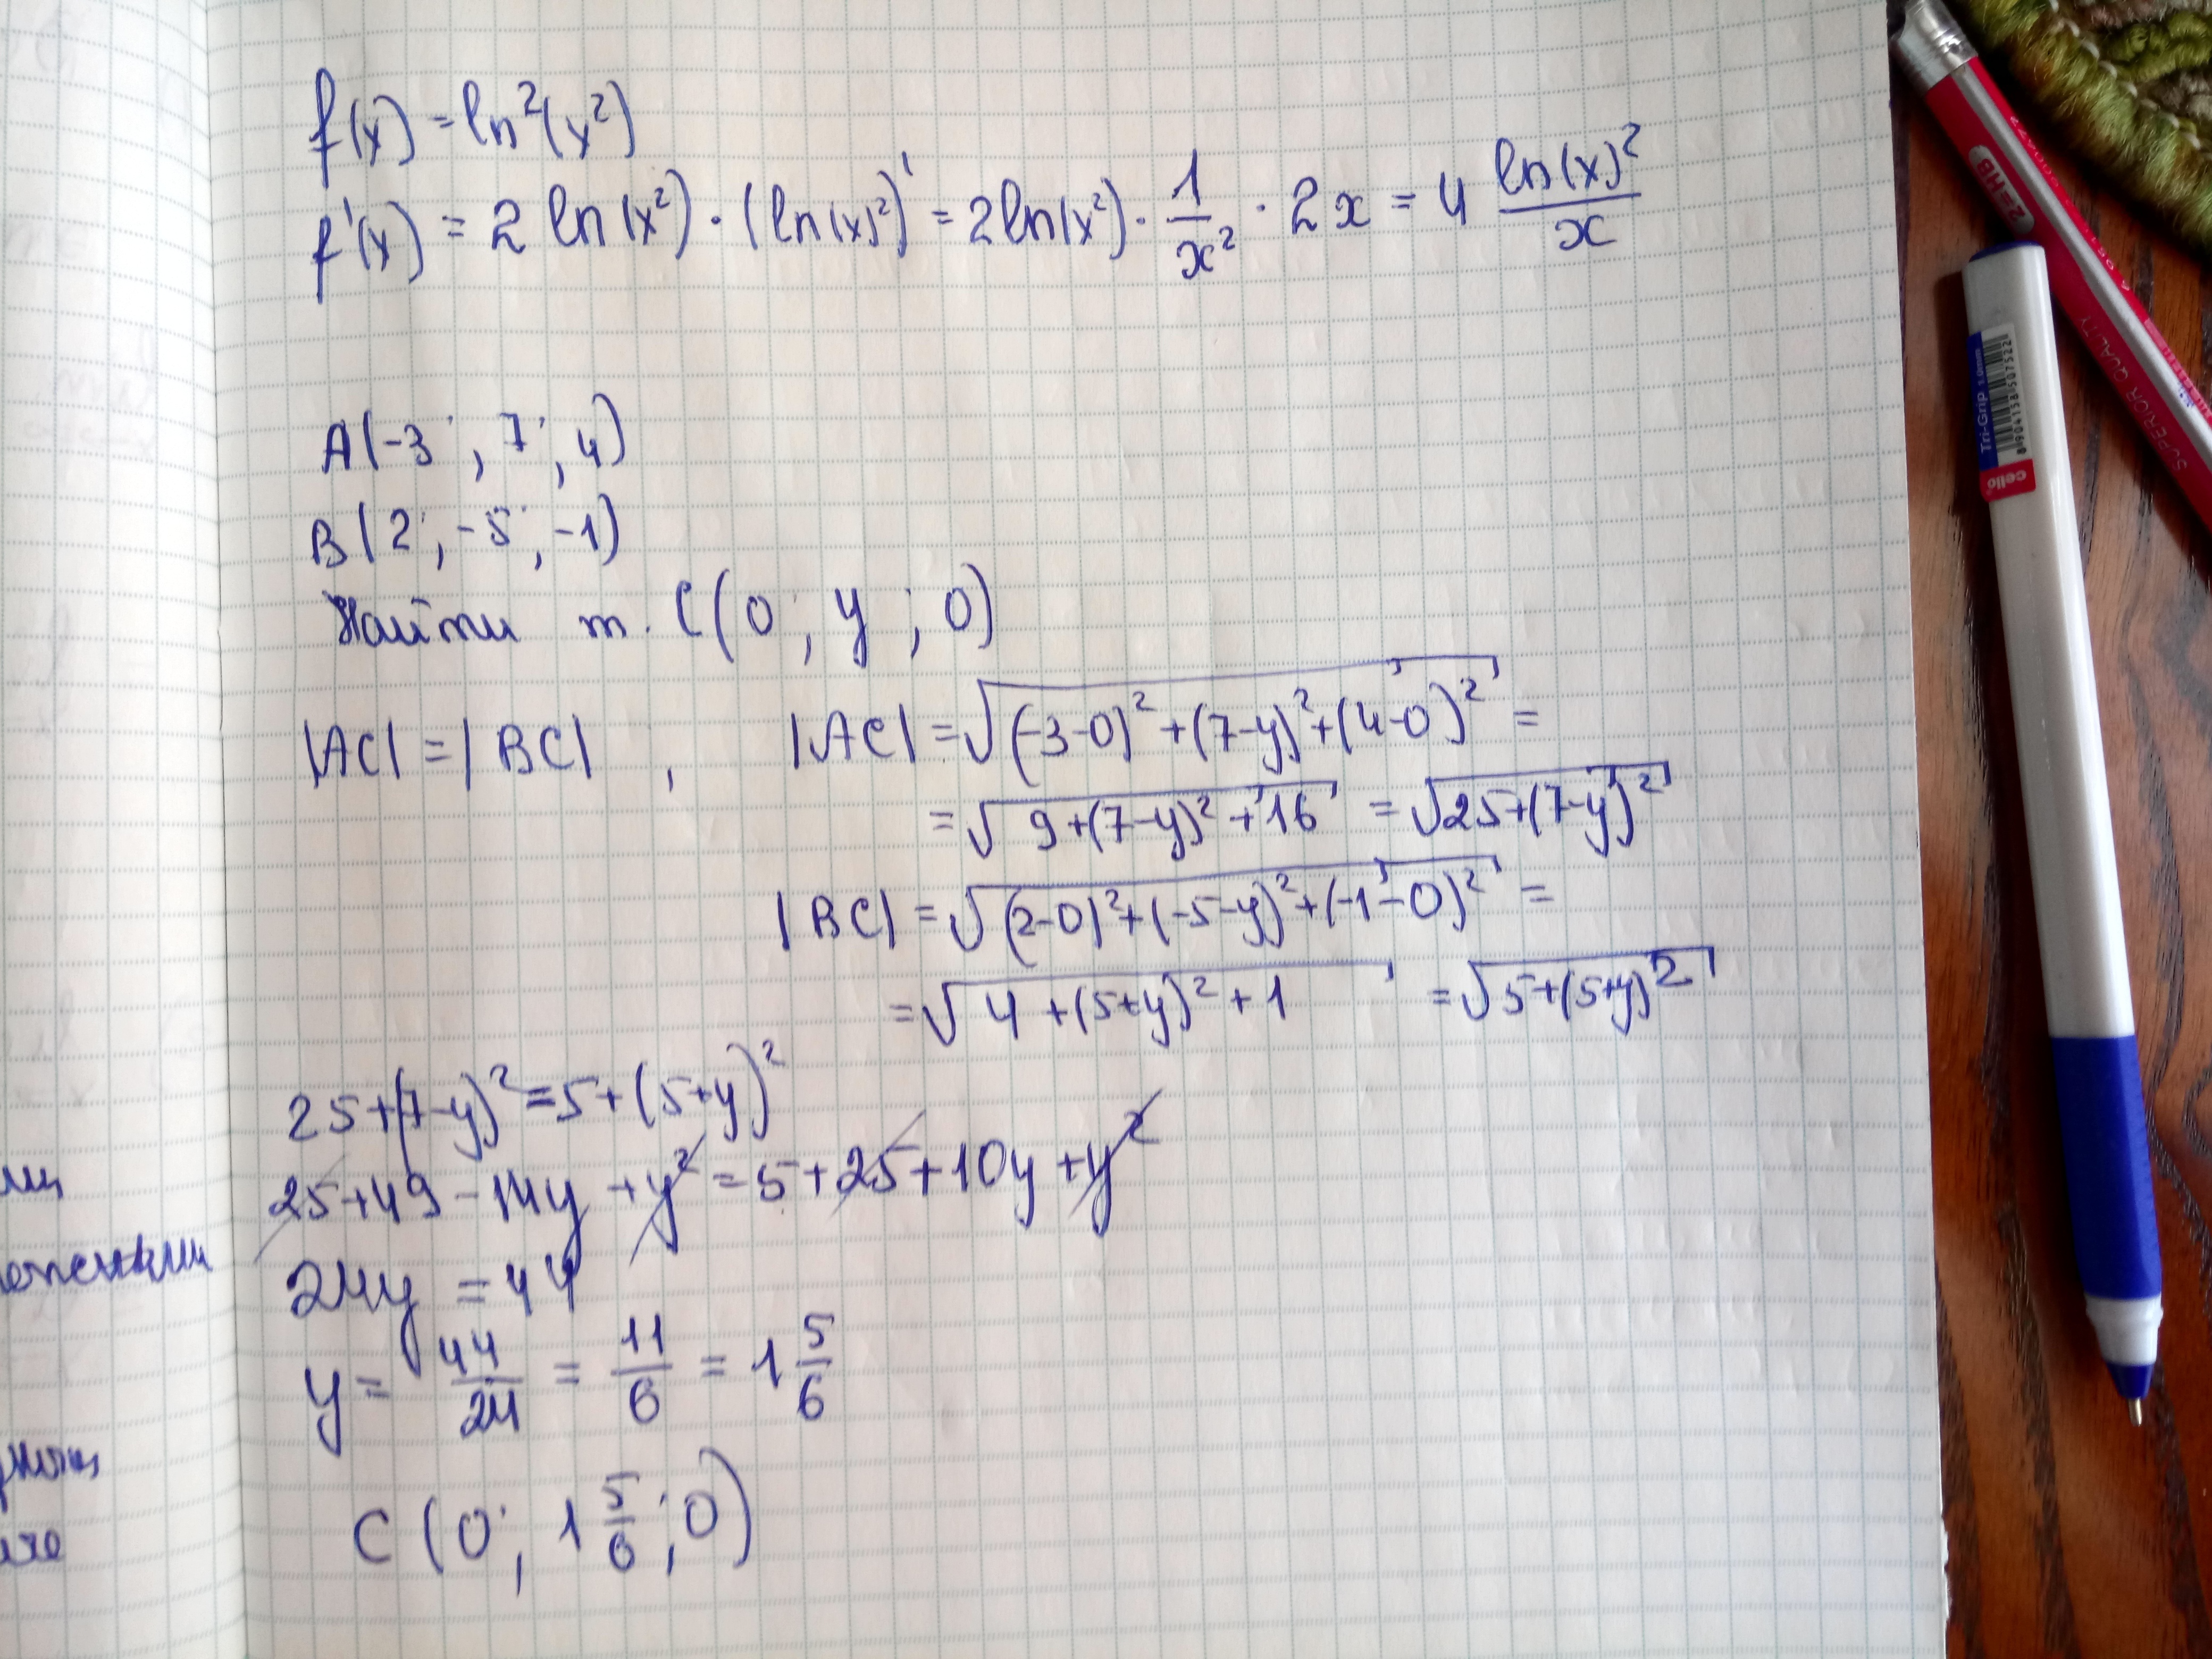 f(x) = ln²(x²)
f'(x) = 2 ln(x²) · (ln(x)²)' = 2ln(x²) · 1/x² · 2x = 4 ln(x)²/x
A(-3; 7; 4)
B(2; -5; -1)
Найти т. C(0; y; 0)
|AC| = |BC|, |AC| = √((-3-0)²+(7-y)²+(4-0)²) =
= √(9+(7-y)²+16) = √(25+(7-y)²)
|BC| = √((2-0)²+(-5-y)²+(-1-0)²) =
= √(4+(5+y)²+1) = √(5+(5+y)²)
25+(7-y)²=5+(5+y)²
25+49-14y+y²=5+25+10y+y²
24y = 44
y = 44/24 = 11/6 = 1 5/6
C (0; 1 5/6; 0)
2=HB
SUPERIOR QUALITY
Tri-Grip 1.0mm
8904158507522
cello